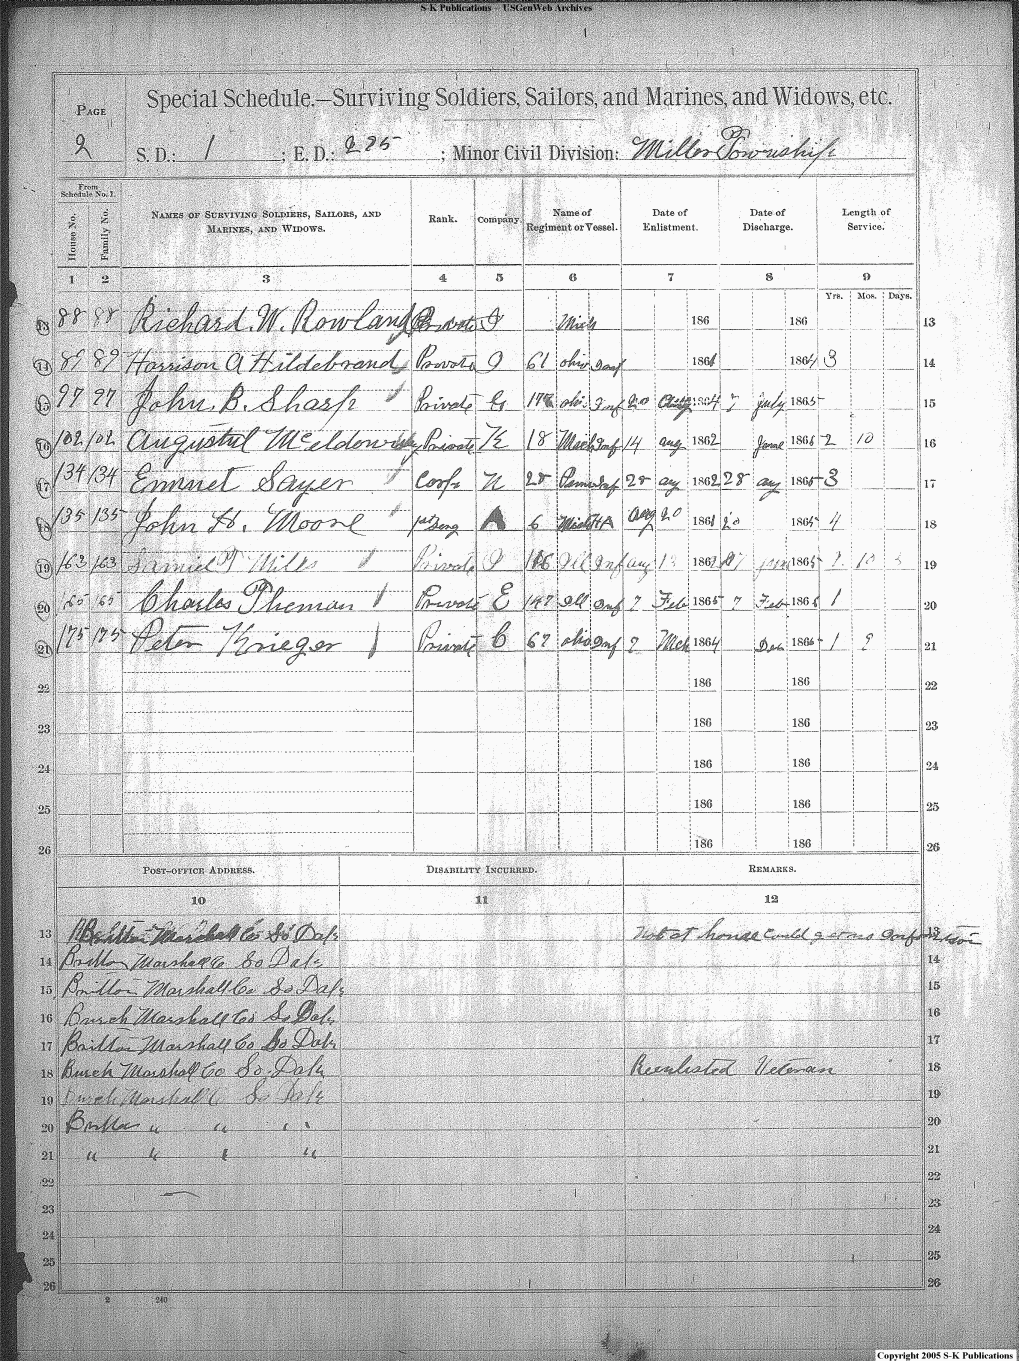 S-K Publications – USGenWeb Archives
Special Schedule.—Surviving Soldiers, Sailors, and Marines, and Widows, etc.
PAGE
2
S. D.: 1 ; E. D.: 225 ; Minor Civil Division: Miller Township
From Schedule No. 1.
House No. Family No. NAMES OF SURVIVING SOLDIERS, SAILORS, AND MARINES, AND WIDOWS. Rank. Company. Name of Regiment or Vessel. Date of Enlistment. Date of Discharge. Length of Service.
1 2 3 4 5 6 7 8 9
Yrs. Mos. Days.
13 88 88 Richard. W. Rowland Private I Mich 186 186 13
14 89 89 Harrison A Hildebrand Private I 61 ohio Inf 1861 1864 3 14
15 97 97 John. B. Sharp Private G ohio Inf 20 1864 7 july 1865 15
16 102 102 Private K 18 Mich Inf 14 aug 1862 June 1865 2 10 16
17 134 134 Emmet Sayer Corp 28 Penn Inf 28 aug 1862 28 aug 1865 3 17
18 135 135 John H. Moore 1st Serg A 6 Mich HA Aug 20 1861 20 1865 4 18
19 163 163 Samuel T Miles Private I Ill Inf aug 13 1862 June 1865 10 19
20 165 165 Charles Pheman Private E 147 Ill Inf 7 Feb 1865 7 Feb 1866 1 20
21 175 175 Peter Krieger Private C 67 ohio Inf 7 Mch 1864 Dec 1865 1 9 21
22 186 186 22
23 186 186 23
24 186 186 24
25 186 186 25
26 186 186 26
POST-OFFICE ADDRESS. DISABILITY INCURRED. REMARKS.
10 11 12
13 Britton Marshall Co So Dak Not at house could get no information 13
14 Britton Marshall Co So Dak 14
15 Britton Marshall Co So Dak 15
16 Burch Marshall Co So Dak 16
17 Britton Marshall Co So Dak 17
18 Burch Marshall Co So. Dak Reenlisted Veteran 18
19 Burch Marshall Co So Dak 19
20 Britton " " " " 20
21 " " " " 21
22 22
23 23
24 24
25 25
26 26
2 240
Copyright 2005 S-K Publications